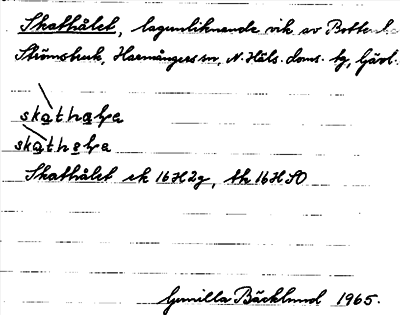 Skathålet, lagunliknande vik av Botten
Strömsbruk, Harmångers sn, N. Häls. doms. tg, Gävl.
skathaḷa
skathaḷa
Skathålet ek 16H2g, tk 16H SO
Gunilla Bäcklund 1965.